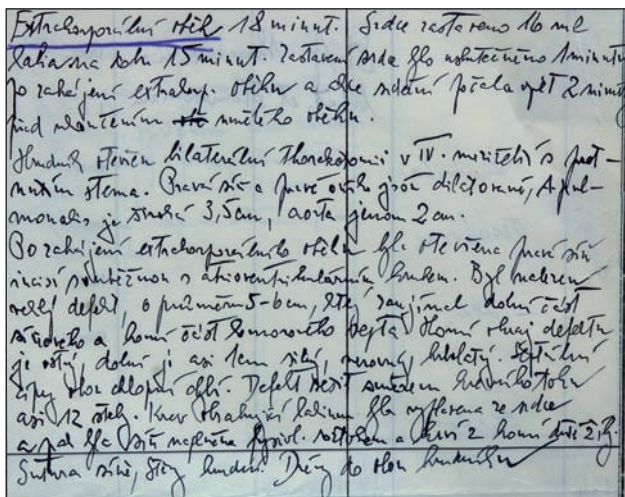 Extrakorporální oběh 18 minut. Srdce zastaveno 16 ml
kalia na dobu 15 minut. Zastavení srdce bylo uskutečněno 1 minutu
po zahájení extrakorp. oběhu a akce srdeční počala opět 2 minuty
před ukončením umělého oběhu.
Hrudník otevřen bilaterální thorakotomií v IV. mezižebří s prot-
nutím sterna. Pravá síň a pravé ouško jsou dilatované, A pul-
monalis je široká 3,5 cm, aorta jenom 2 cm.
Po zahájení extrakorporálního oběhu byla otevřena pravá síň
incisí souběžnou s atrioventrikulárním Byl nalezen
velký defekt, o průměru 5-6 cm, který zaujímal dolní část
síňového a horní část komorového septa. Horní okraj defektu
je ostrý, dolní je asi 1 cm silný, nerovný, Septální
cípy obou chlopní chybí. Defekt sešit směrem toku
asi 12 stehy. Krev obsahující kalium byla ze srdce
a pak byla síň naplněna fysiol. roztokem a krví z horní duté ž.
Sutura síně, stěny hrudní. Drény do obou